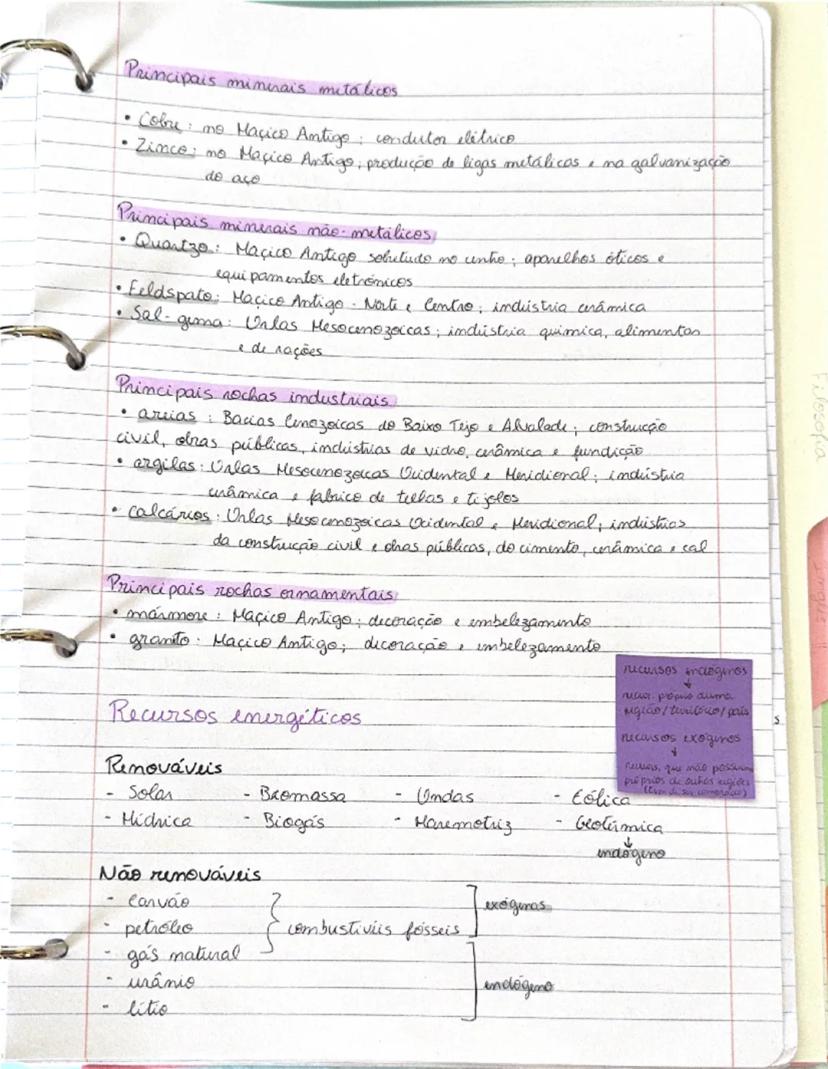 Principais minerais metálicos
• Cobre: no Maciço Antigo; condutor elétrico
• Zinco: no Maciço Antigo; produção de ligas metálicas e na galvanização
do aço
Principais minerais não-metálicos
• Quartzo: Maciço Antigo sobretudo no centro; aparelhos óticos e
equipamentos eletrónicos
• Feldspato: Maciço Antigo - Norte e Centro; indústria cerâmica
• Sal-gema: Orlas Mesocenozoicas; indústria quimica, alimentar
e de rações
Principais rochas industriais
• areias: Bacias Cenozoicas do Baixo Tejo e Alvalade; construção
civil, obras públicas, indústrias de vidro, cerâmica e fundição
• argilas: Orlas Mesocenozoicas Ocidental e Meridional; indústria
cerâmica e fabrico de telhas e tijolos
• calcários: Orlas Mesocenozoicas Ocidental e Meridional; indústrias
da construção civil e obras públicas, do cimento, cerâmica e cal
Principais rochas ornamentais
• mármore: Maciço Antigo; decoração e embelezamento
• granito: Maciço Antigo; decoração e embelezamento
recursos endógenos
↓
recur. próprio duma
região/território/país
recursos exógenos
↓
recurs, que não possuímos
próprios de outras regiões
Recursos energéticos
Renováveis
- Solar - Biomassa - Ondas - Eólica
- Hídrica - Biogás - Maremotriz - Geotérmica
↓
endógeno
Não renováveis
- carvão
- petróleo combustíveis fósseis exógenas
- gás natural
- urânio endógeno
- lítio
Filosofia
Inglês